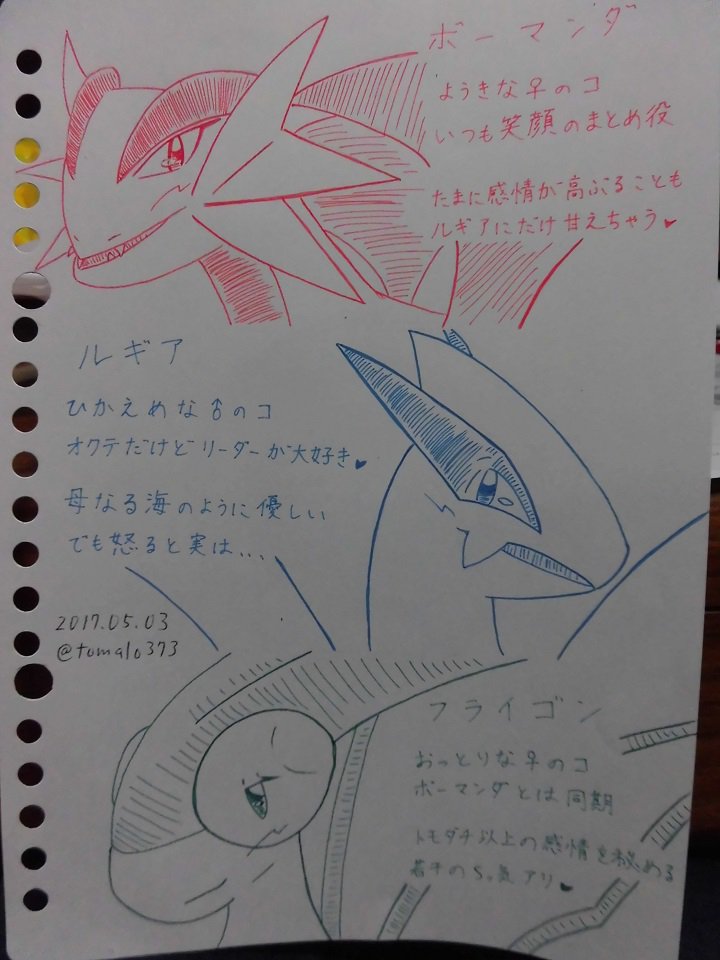 ボーマンダ
ようきな♀のコ
いつも笑顔のまとめ役
たまに感情が高ぶることも
ルギアにだけ甘えちゃう♥
ルギア
ひかえめな♂のコ
オクテだけどリーダーが大好き♥
母なる海のように優しい
でも怒ると実は...
2017.05.03
@tomalo373
フライゴン
おっとりな♀のコ
ボーマンダとは同期
トモダチ以上の感情を秘める
若干のSっ気アリ♥